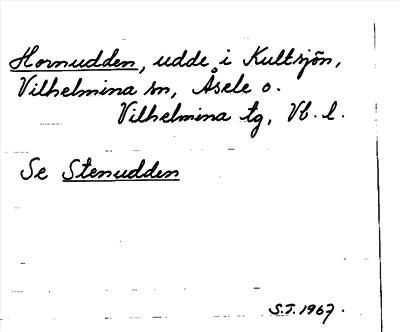 Hornudden, udde i Kultsjön,
Vilhelmina sn, Åsele o.
Vilhelmina tg, Vb. l.
Se Stenudden
S.T. 1967.